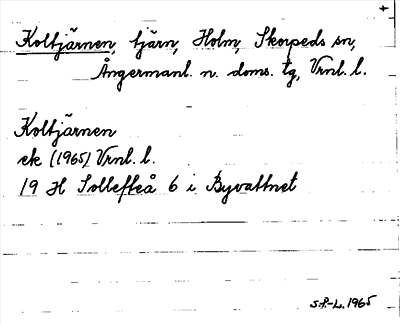 Koltjärnen, tjärn, Holm, Skorpeds sn,
Ångermanl. n. doms. tg, Vrnl. l.
Koltjärnen
ek (1965) Vrnl. l.
19 H Sollefteå 6 i Byvattnet
S.F.-L. 1965